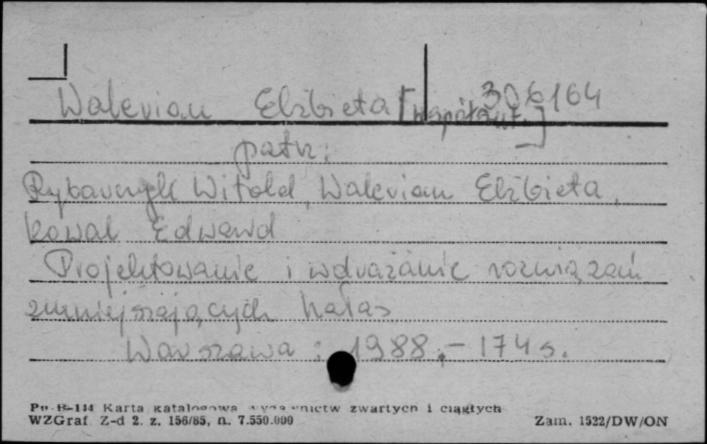 306164
Walerian Elżbieta [współaut.]
patrz:
Rybarczyk Witold, Walerian Elżbieta,
Kowal Edward
Projektowanie i wdrażanie rozwiązań
zmniejszających hałas
Warszawa : 1988.- 174 s.
Pu B-114 Karta katalogowa wydawnictw zwartych i ciągłych
WZGraf. Z-d 2. z. 156/85, n. 7.550.000 Zam. 1522/DW/ON